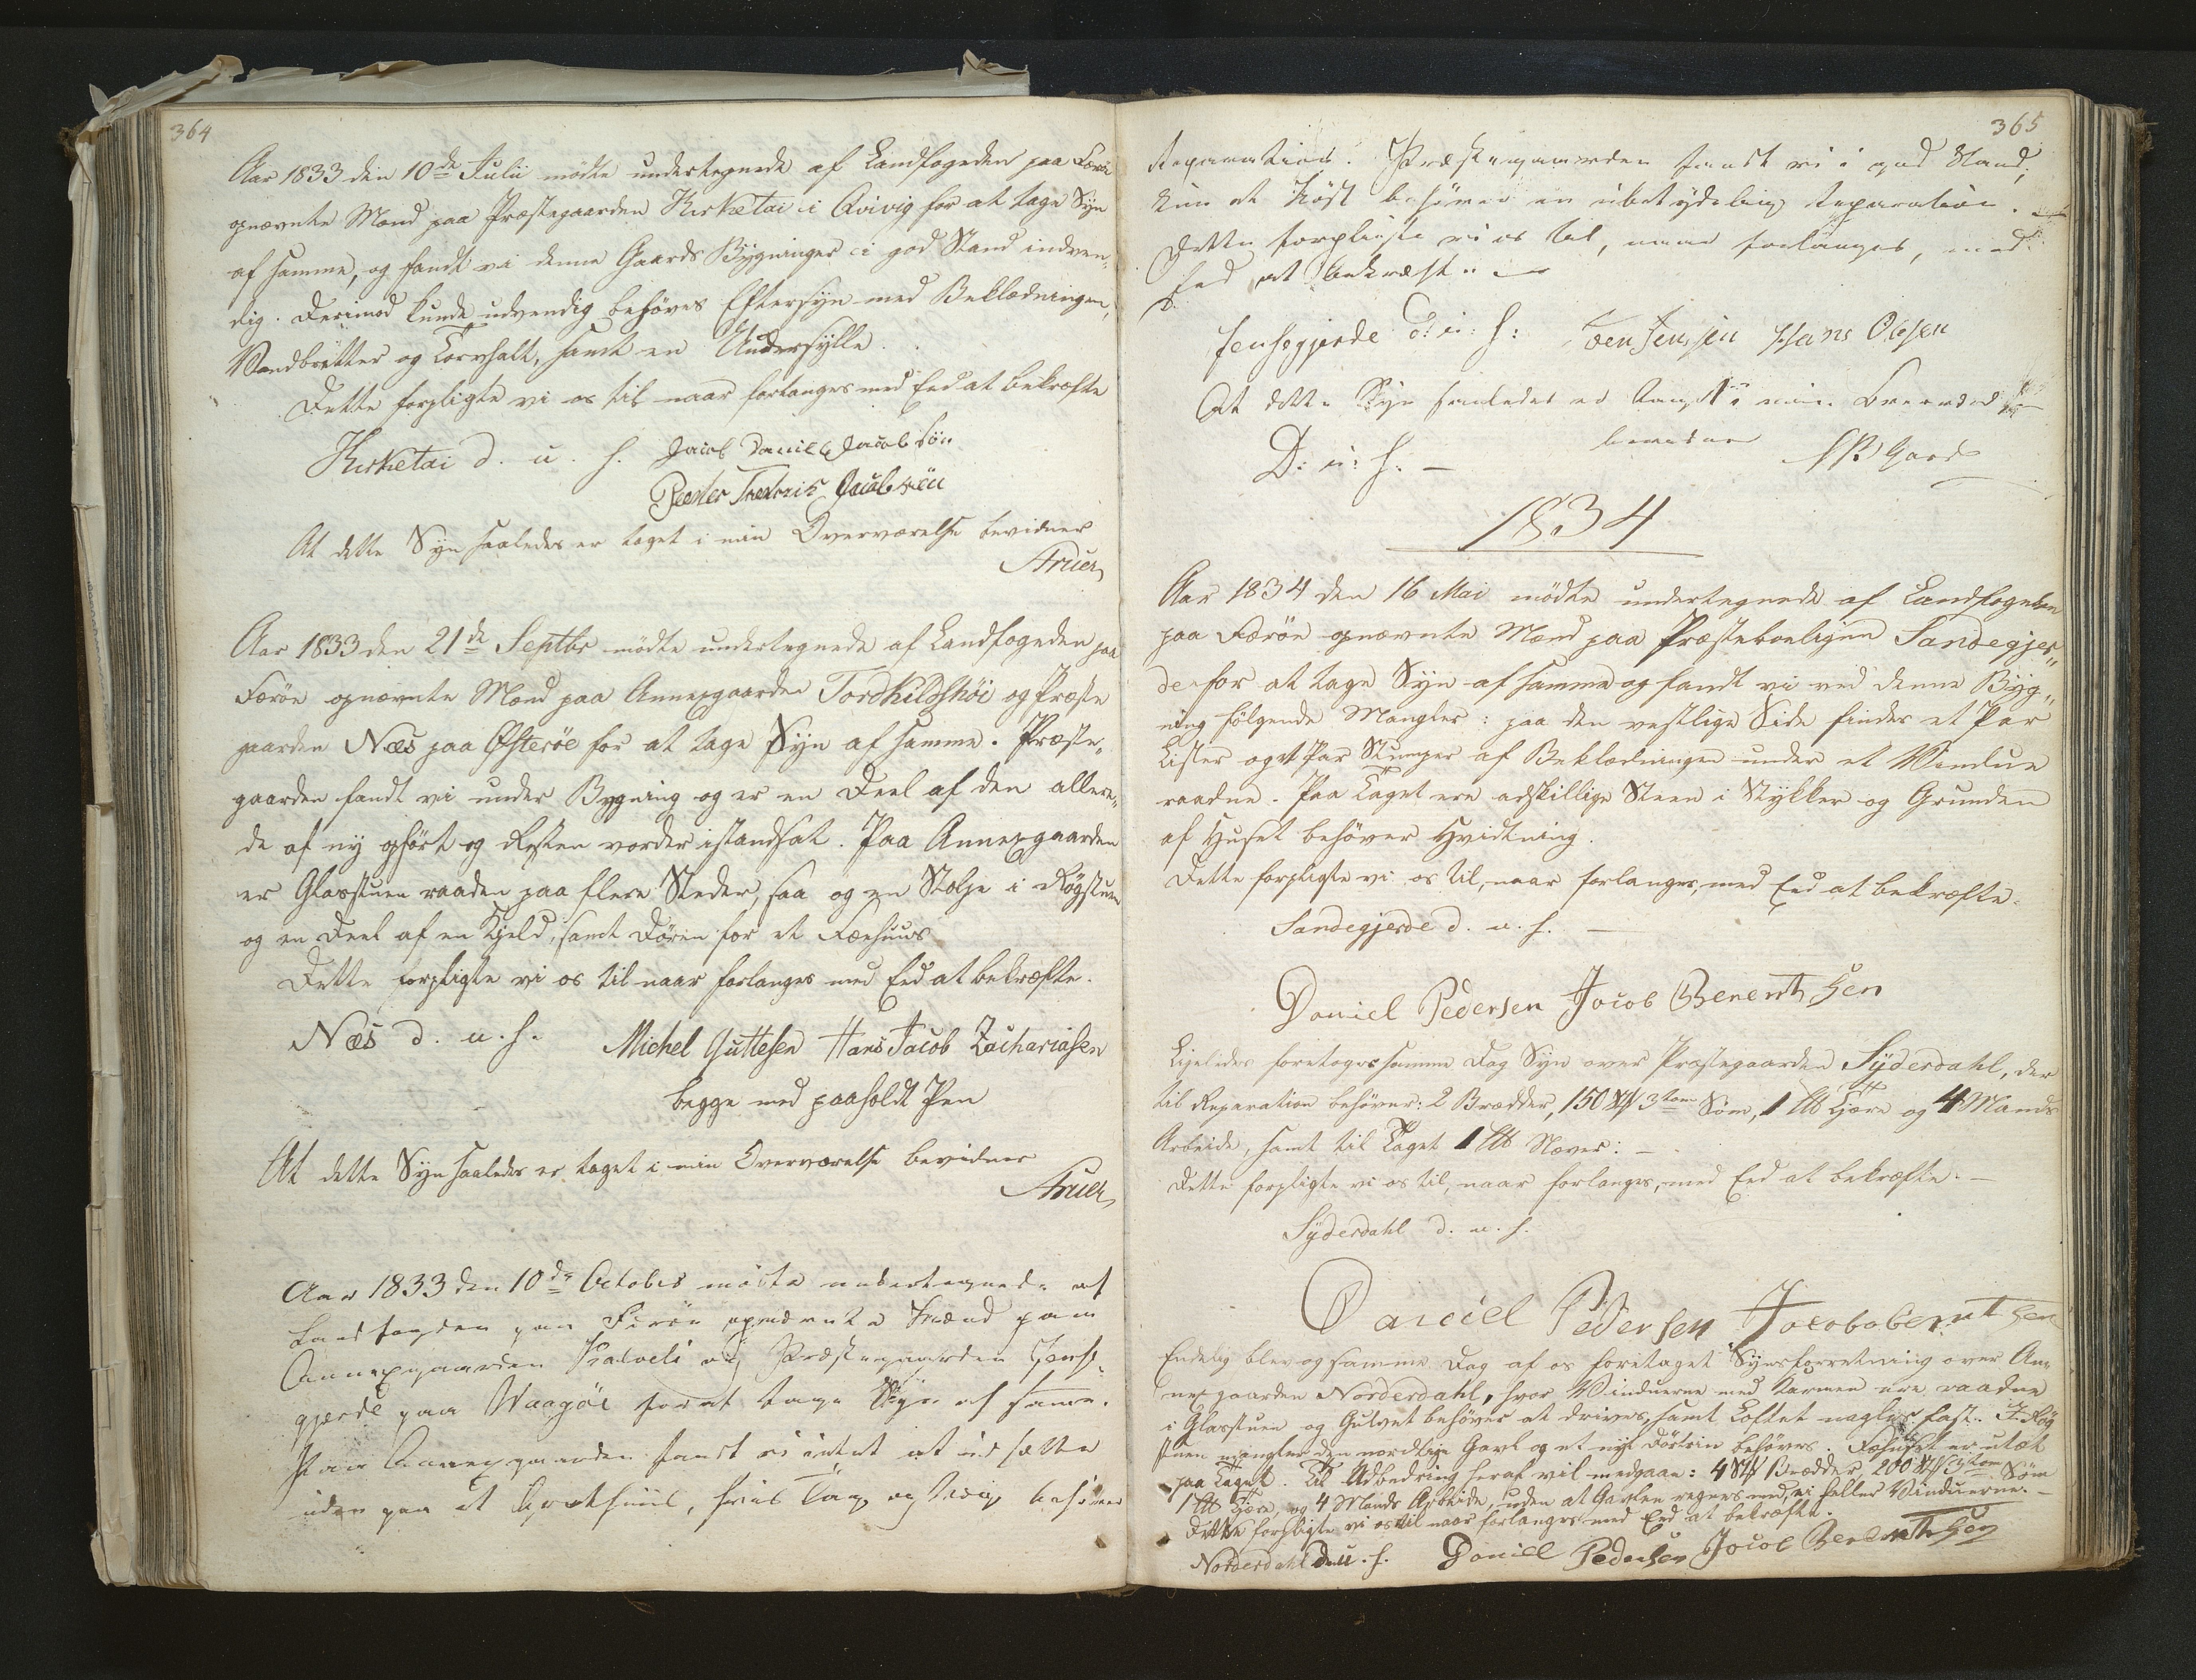 364
Aar 1833 den 10de Julii mødte undertegnede af Landfogeden paa Færøe
opnævnte Mænd paa Præstegaarden Kirketai i Qvivig for at tage Syn
af samme, og fandt vi denne Gaards Bygninger i god Stand indven-
dig. Derimod kunde udvendig behøves Eftersyn med Beklædningen,
Vandbretter og Torvhalt, samt en Undersylle.
Dette forpligte vi os til naar forlanges med Eed at bekræfte
Kirketai d. u. s. Jacob Daniel Jacobsøn
Peder Fredrik Jacobsøn
At dette Syn saaledes er taget i min Overværelse bevidner
Aruer
Aar 1833 den 21de Septbr mødte undertegnede af Landfogeden paa
Færøe opnævnte Mænd paa Annexgaarden Tordkildshøi og Præste
gaarden Næs paa Østerøe for at tage Syn af samme. Præste-
gaarden fandt vi under Bygning og er en Deel af den allere-
de af ny opført og Resten vorder istandsat. Paa Annexgaarden
er Glasstuen raaden paa flere Steder, saa og en Stolpe i Røgstuen
og en Deel af en Hjeld, samt Døren for et Fæehuus
Dette forpligte vi os til naar forlanges med Eed at bekræfte.
Næs d. u. s. Michel Guttesen Hans Jacob Zachariasen
begge med paaholdt Pen
At dette Syn saaledes er taget i min Overværelse bevidner
Aruer
Aar 1833 den 10de October mødte undertegnede af
Landfogden paa Færøe opnævnte Mænd paa
Annexgaarden Kalveli og Præstegaarden Jense-
gjerde paa Waagøe for at tage Syn af samme.
Paa Annexgaarden fandt vi intet at udsætte
uden paa et huus, hvis Tag og behøver
365
Reparation. Præstegaarden fandt vi i god Stand,
kun et behøver en ubetydelig Reparation.
Dette forpligte vi os til, naar forlanges, med
Eed at bekræfte.
Jensegjerde d: u: s: Joen Jensen Hans Olesen
At dette Syn saaledes er taget i min Overværelse
bevidner
D: u: s. Gaard
1834
Aar 1834 den 16 Mai mødte undertegnede af Landfogeden
paa Færøe opnævnte Mænd paa Præsteboeligen Sandegjer-
de for at tage Syn af samme og fandt vi ved denne Byg-
ning følgende Mangler: paa den vestlige Side findes et Par
Lister og et Par Stumper af Beklædningen under et Vindue
raadne. Paa Taget ere adskillige Steen i Stykker og Grunden
af Huset behøver Hvidtning.
Dette forpligte vi os til, naar forlanges, med Eed at bekræfte.
Sandegjerde d. u. s.
Daniel Pedersen Jocob Berentsen
Ligeledes foretoges samme Dag Syn over Præstegaarden Syderdahl, der
til Reparation behøver: 2 Brædder, 150 Stk 3 tom Søm, 1 Tjære og 4 Mands
Arbeide, samt til Taget 1 Næver:
Dette forpligte vi os til, naar forlanges, med Eed at bekræfte.
Syderdahl d. u. s.
Daniel Pedersen Jocob Berentsen
Endelig blev og samme Dag af os foretaget Synsforretning over An-
nexgaarden Norderdahl, hvor Vinduerne med Karmen ere raadne
i Glasstuen og Gulvet behøver at drives, samt Loftet nagles fast. I Røg
stuen mangler den nordlige Gavl og et nyt Dørtrin behøves. Fæhuset er utæt
paa Taget. Til Udbedring heraf vil medgaae: 4 Stk Brædder, 200 Stk 3 tom Søm
1 Tjære, og 4 Mands Arbeide, uden at Gavlen regnes med, ei heller Vinduerne.
Dette forpligte vi os til naar forlanges med Eed at bekræfte.
Norderdahl d. u. s. Daniel Pedersen Jocob Berentsen